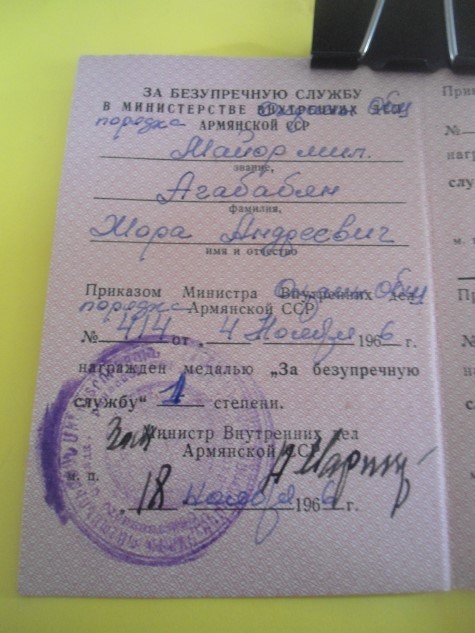 ЗА БЕЗУПРЕЧНУЮ СЛУЖБУ
В МИНИСТЕРСТВЕ ВНУТРЕННИХ ДЕЛ Охраны Общ
порядка АРМЯНСКОЙ ССР
Майор мил.
звание,
Агабабян
фамилия,
Жора Андреевич
имя и отчество
Приказом Министра Внутренних дел Охраны Общ
порядка Армянской ССР
№ 414 от „ 4 Ноября 1966 г.
награжден медалью „За безупречную
службу“ 1 степени.
Зам Министр Внутренних дел
Армянской ССР
м. п.
„ 18 Ноября 1966 г.
Прик
№
наг
слу
м.